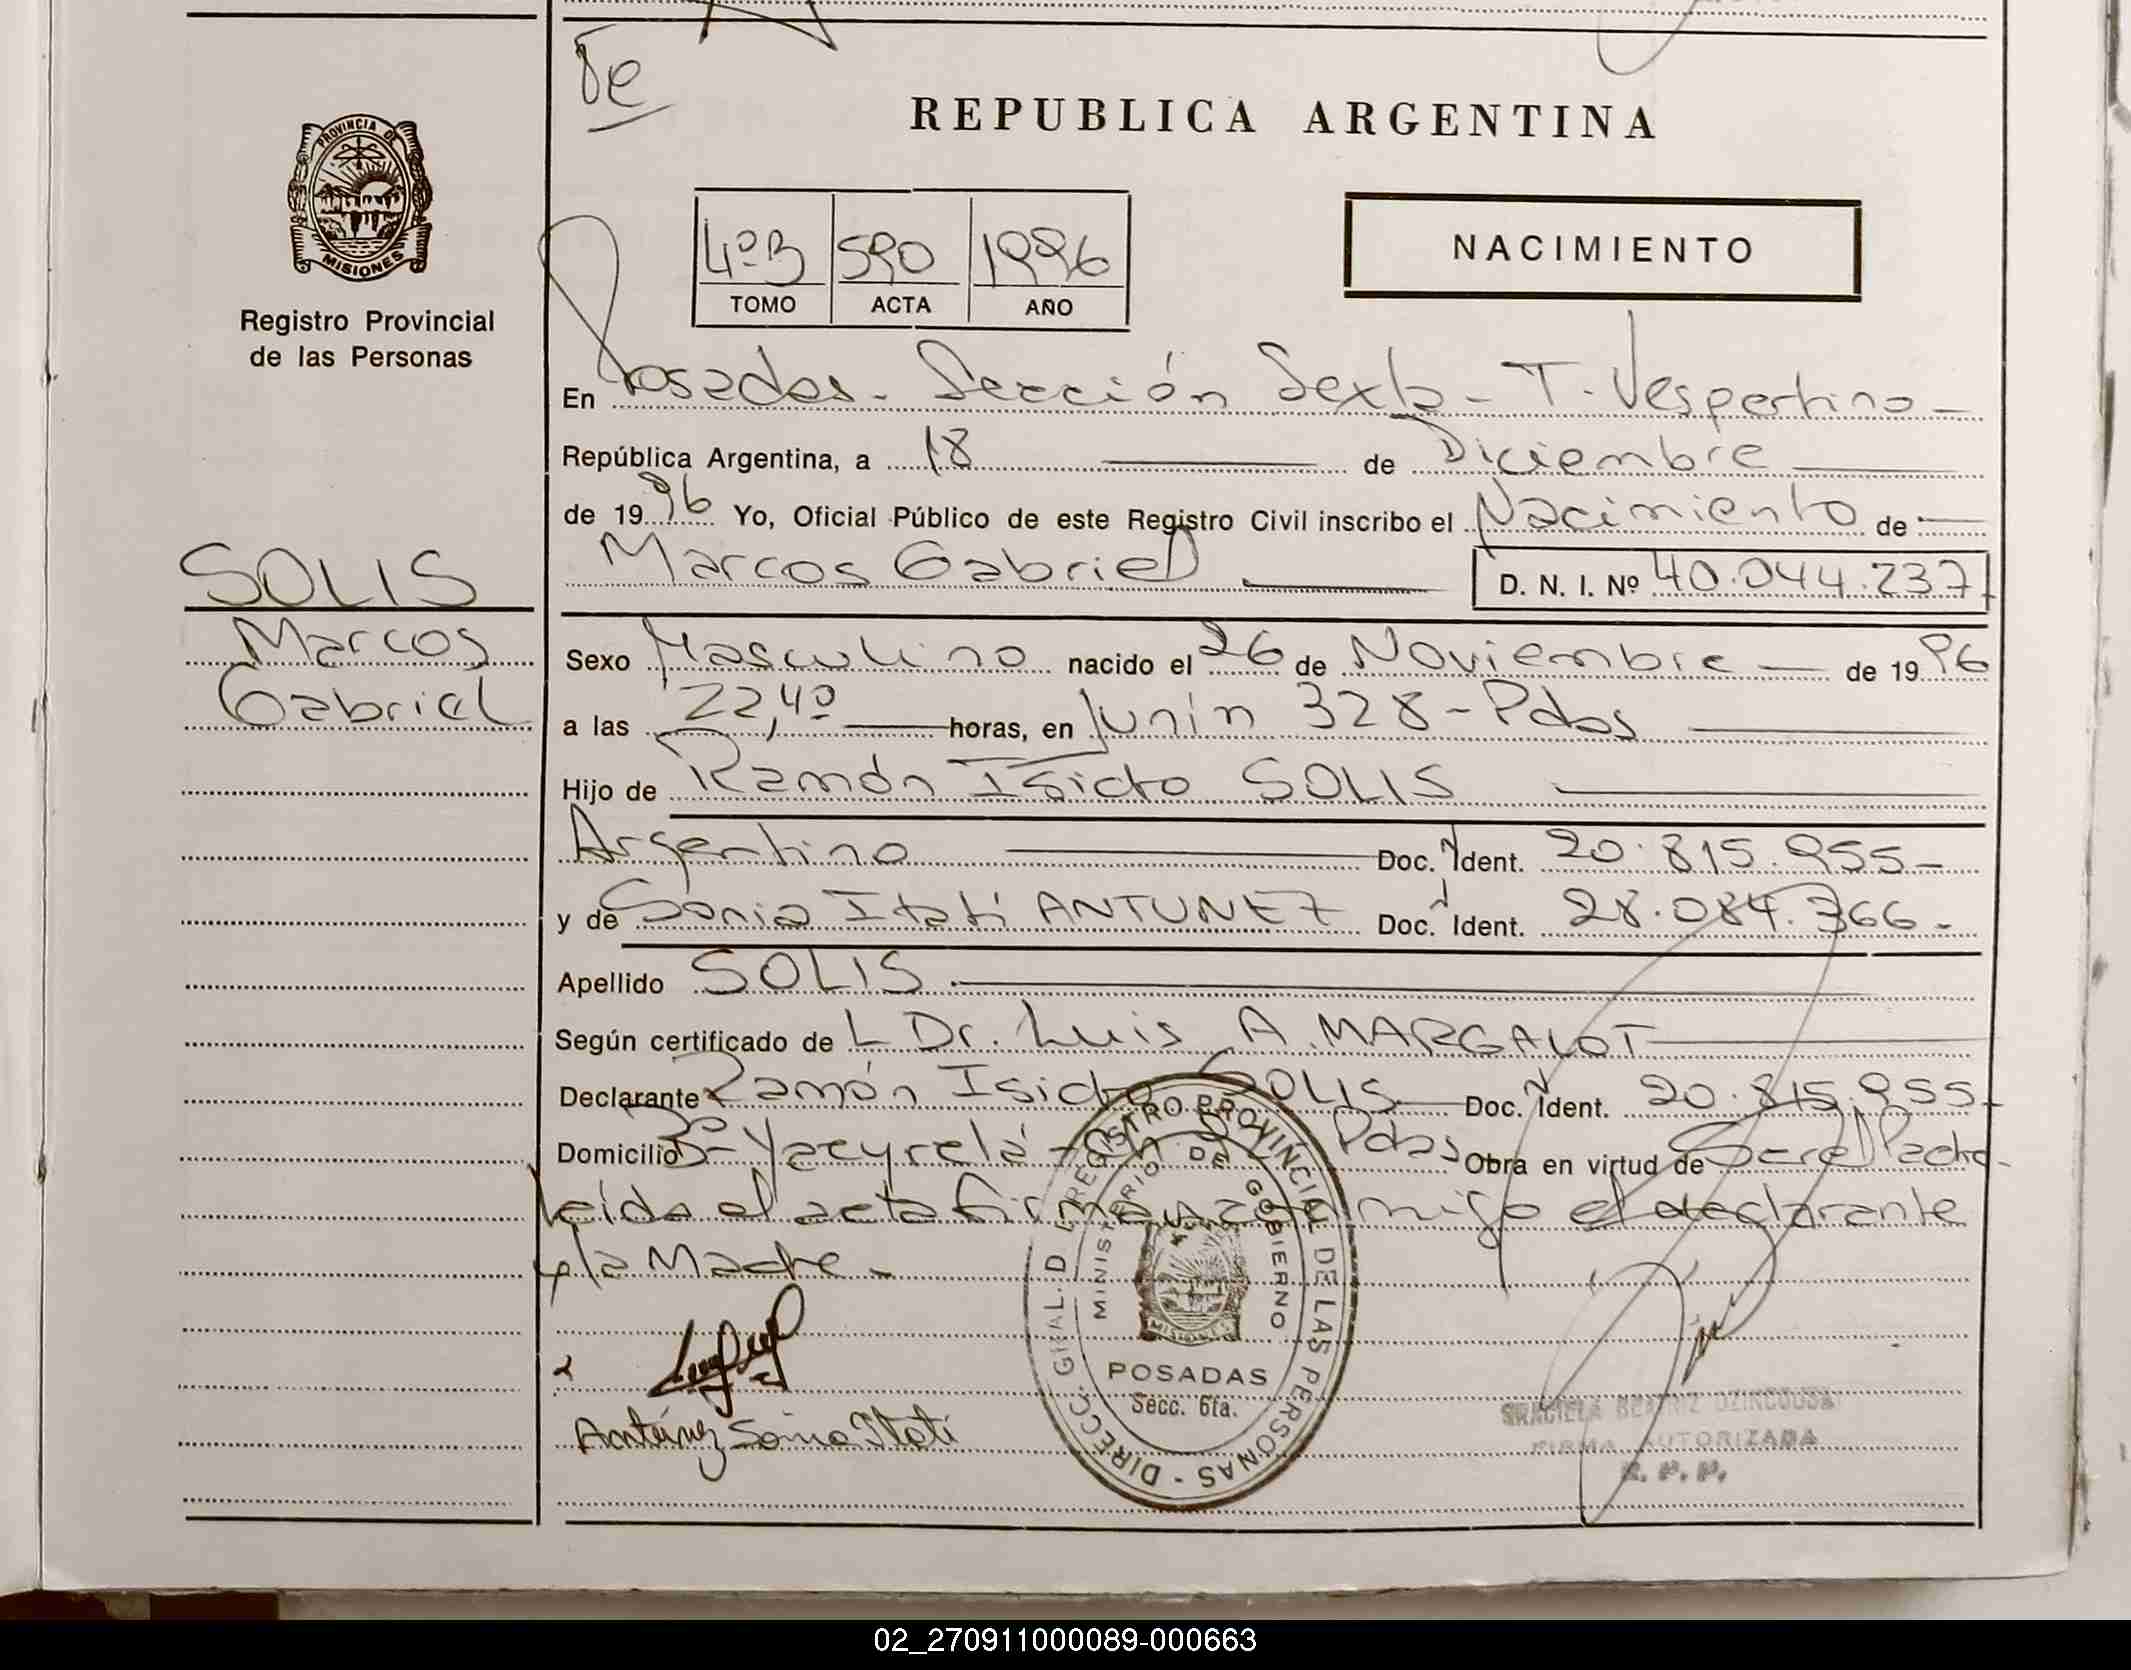 Te
PROVINCIA DE
MISIONES
Registro Provincial
de las Personas
REPUBLICA ARGENTINA
4º B 590 1996
TOMO ACTA AÑO
NACIMIENTO
En Posadas - Sección Sexta - T. Vespertino -
República Argentina, a 18 de Diciembre
de 1996 Yo, Oficial Público de este Registro Civil inscribo el Nacimiento de
Marcos Gabriel D. N. I. Nº 40.044.237
SOLIS
Marcos
Gabriel
Sexo Masculino nacido el 26 de Noviembre de 1996
a las 22,40 horas, en Junín 328 - Pdas
Hijo de Ramón Isidro SOLIS
Argentino Doc. Ident. 20.815.955-
y de Sonia Itatí ANTUNEZ Doc. Ident. 28.084.366-
Apellido SOLIS
Según certificado de L Dr. Luis A. MARGALOT
Declarante Ramón Isidro SOLIS Doc. Ident. 20.815.955-
Domicilio Bº Yacyretá - Pdas Obra en virtud de Ser el Padre-
Leída el acta firma conmigo el declarante
y la Madre -
Antúnez Sonia Itatí
DIRECC. GRAL. D REGISTRO PROVINCIAL DE LAS PERSONAS -
MINISTERIO DE GOBIERNO
MISIONES
POSADAS
Secc. 6ta.
GRACIELA BEATRIZ
FIRMA AUTORIZADA
R. P. P.
02_270911000089-000663